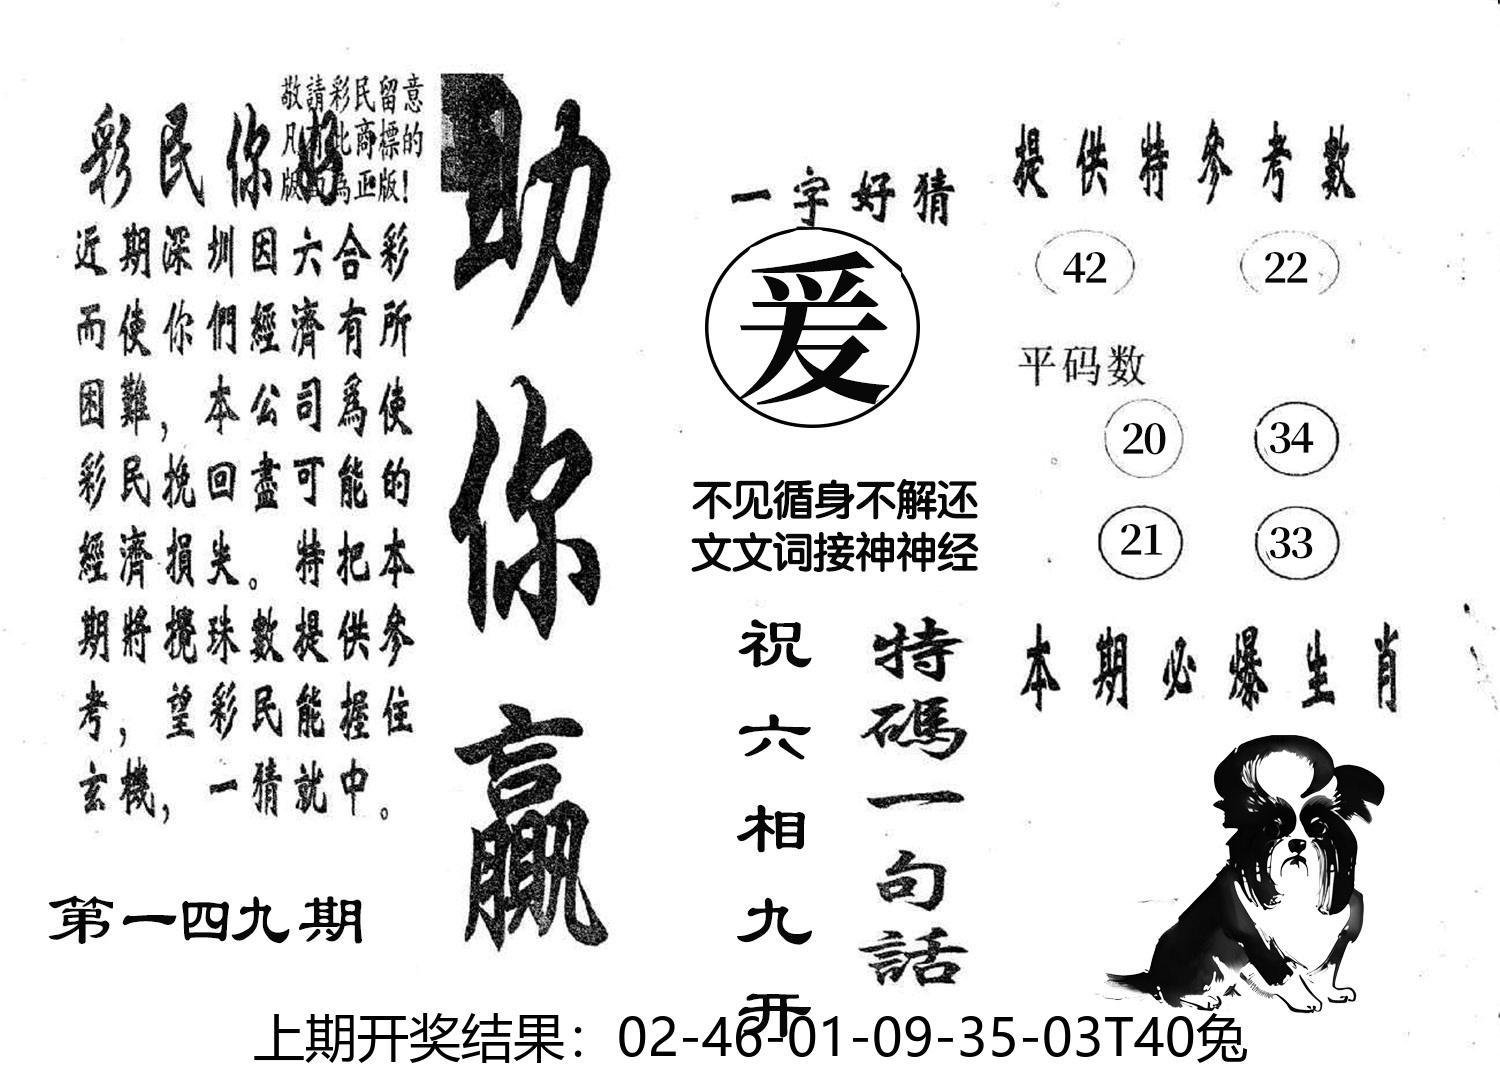 敬請彩民留意
凡有此商標的
版面為正版!
彩民你好
近期深圳因六合彩
而使你們經濟有所
困難，本公司爲使
彩民挽回盡可能的
經濟損失。特把本
期將攪珠數提供參
考，望彩民能握住
玄機，一猜就中。
第一四九期
助你贏
一字好猜
爰
不见循身不解还
文文词接神神经
特碼一句話
祝六相九开
提供特參考數
42 22
平码数
20 34
21 33
本期必爆生肖
上期开奖结果：02-46-01-09-35-03T40兔